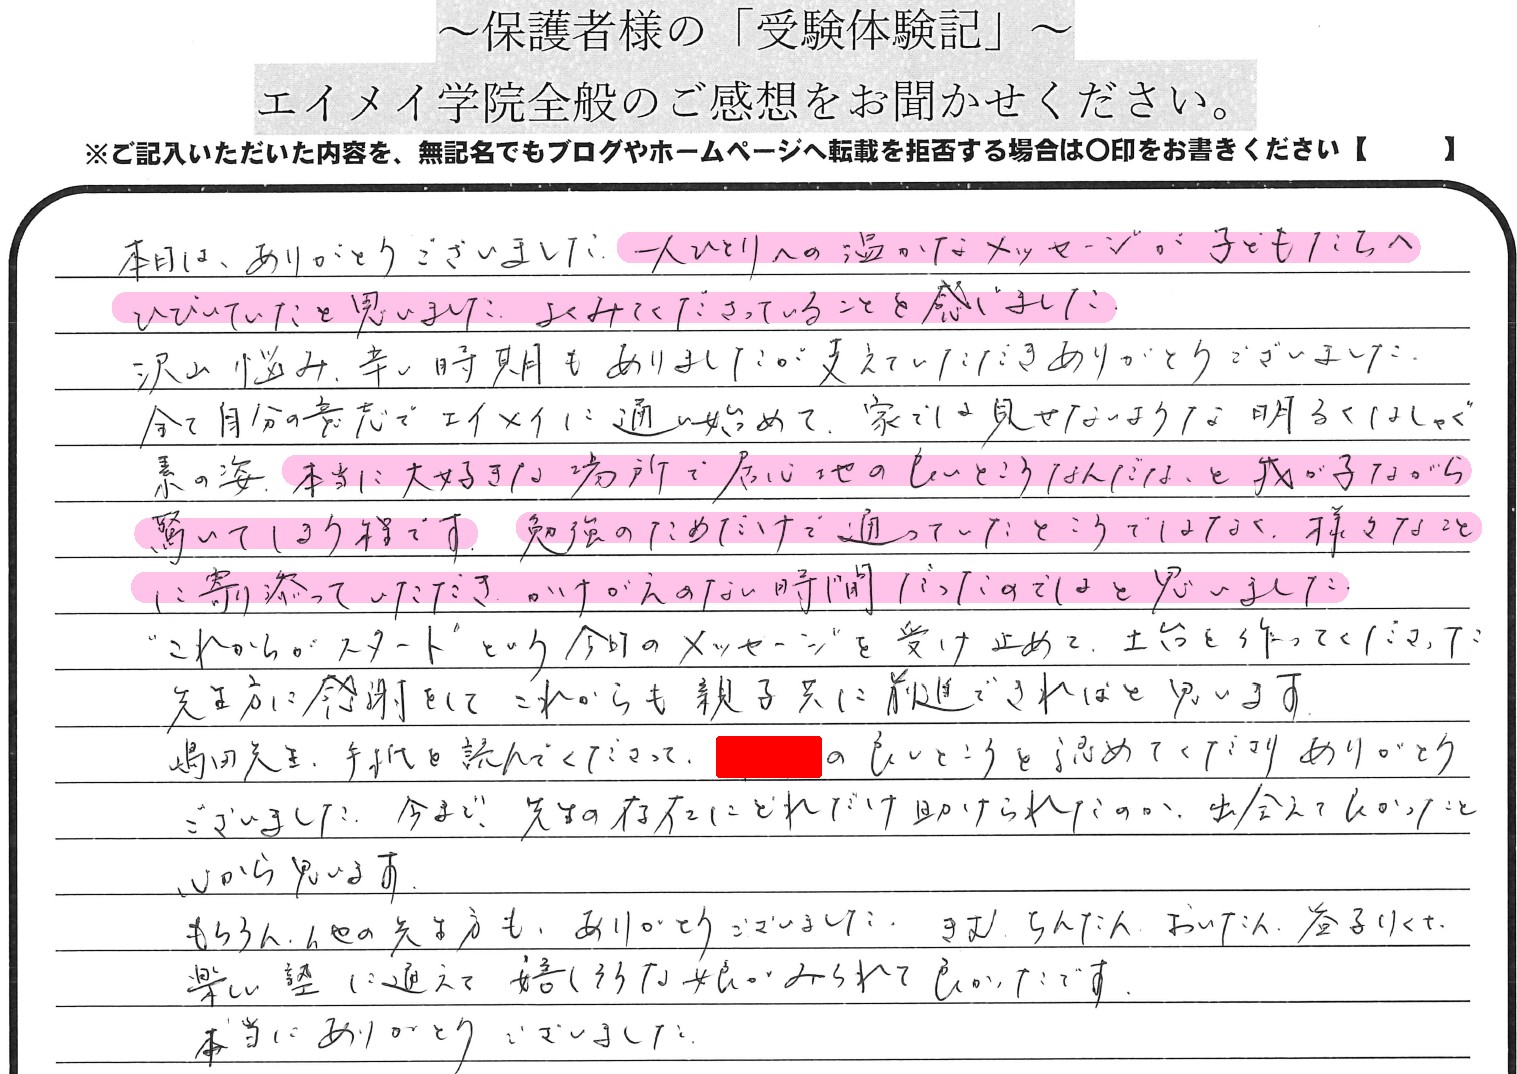 ～保護者様の「受験体験記」～
エイメイ学院全般のご感想をお聞かせください。
※ご記入いただいた内容を、無記名でもブログやホームページへ転載を拒否する場合は〇印をお書きください【　　】
本日は、ありがとうございました。一人ひとりへの温かなメッセージが子どもたちへ
ひびいていたと思いました。よくみてくださっていることを感じました。
沢山悩み、辛い時期もありましたが支えていただきありがとうございました。
全て自分の意志でエイメイに通い始めて、家では見せないような明るくはしゃぐ
素の姿、本当に大好きな場所で居心地の良いところなんだな、と我が子ながら
驚いてしまう程です。勉強のためだけで通っていたところではなく、様々なこと
に寄り添っていただき、かけがえのない時間だったのではと思いました。
“これからがスタート”という今日のメッセージを受け止めて、土台を作ってくださった
先生方に感謝をして これからも親子共に前進できればと思います。
嶋田先生、手紙を読んでくださって、の良いところを認めてくださりありがとう
ございました。今まで、先生の存在にどれだけ助けられたのか、出会えて良かったと
心から思います。
もちろん、他の先生方も、ありがとうございました。きむ、ちんたん、おいたん、
楽しい塾に通えて嬉しそうな娘がみられて良かったです。
本当にありがとうございました。